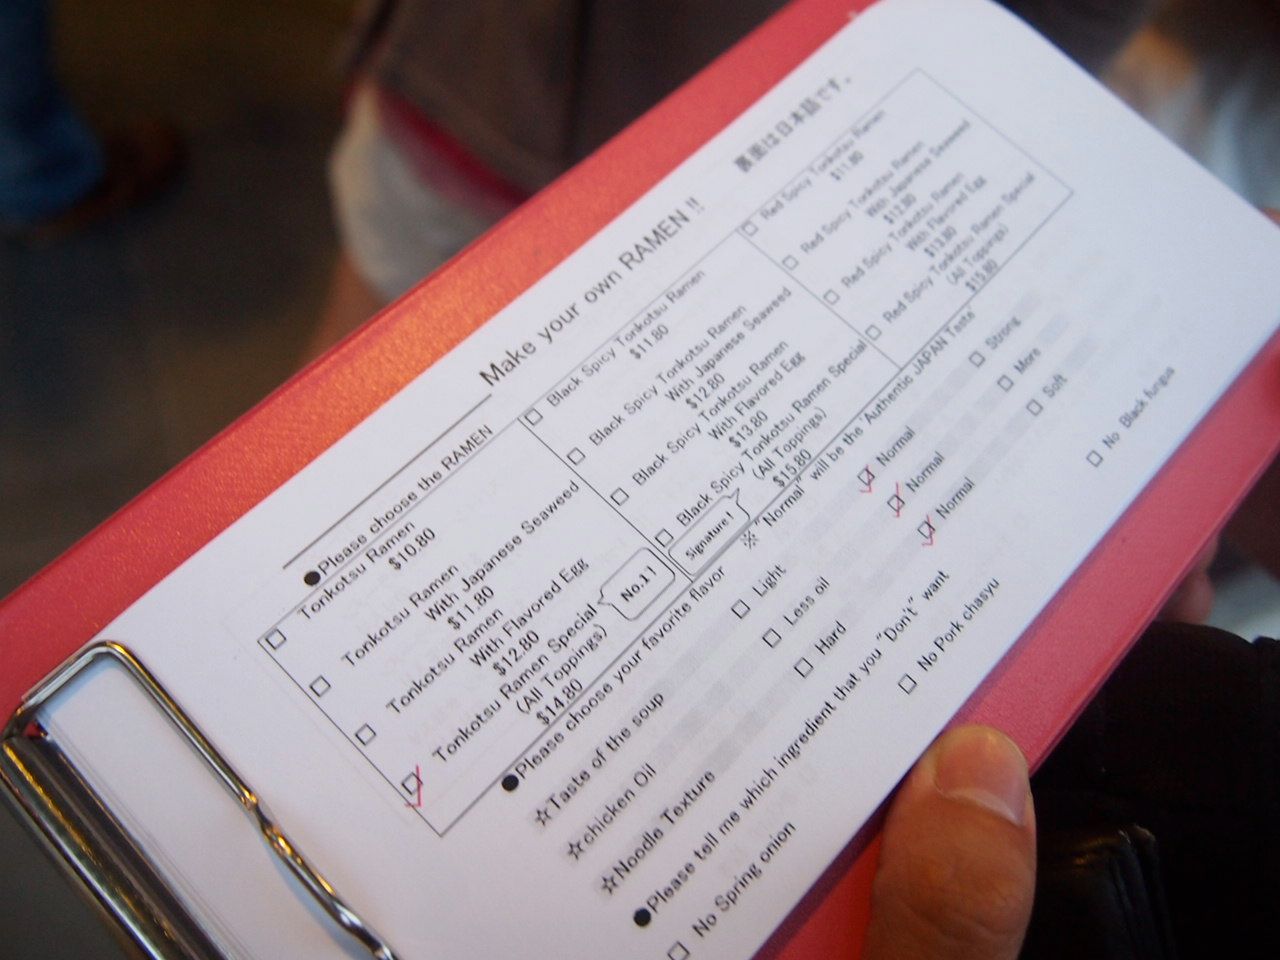 Make your own RAMEN !!
裏面は日本語です。
●Please choose the RAMEN
□ Tonkotsu Ramen
$10.80
□ Tonkotsu Ramen
With Japanese Seaweed
$11.80
□ Tonkotsu Ramen
With Flavored Egg
$12.80
□ Tonkotsu Ramen Special
(All Toppings)
$14.80
No.1!
□ Black Spicy Tonkotsu Ramen
$11.80
□ Black Spicy Tonkotsu Ramen
With Japanese Seaweed
$12.80
□ Black Spicy Tonkotsu Ramen
With Flavored Egg
$13.80
□ Black Spicy Tonkotsu Ramen Special
(All Toppings)
$15.80
Signature!
□ Red Spicy Tonkotsu Ramen
$11.80
□ Red Spicy Tonkotsu Ramen
With Japanese Seaweed
$12.80
□ Red Spicy Tonkotsu Ramen
With Flavored Egg
$13.80
□ Red Spicy Tonkotsu Ramen Special
(All Toppings)
$15.80
●Please choose your favorite flavor ※"Normal" will be the "Authentic JAPAN Taste"
☆Taste of the soup □ Light □ Normal □ Strong
☆chicken Oil □ Less oil □ Normal □ More
☆Noodle Texture □ Hard □ Normal □ Soft
●Please tell me which ingredient that you "Don't" want
□ No Spring onion □ No Pork chasyu □ No Black fungus